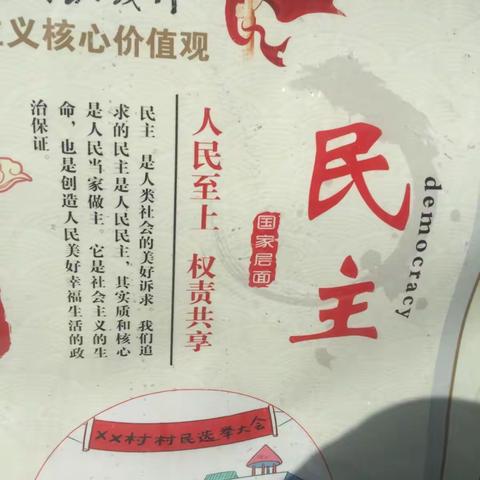 义核心价值观
民主
democracy
国家层面
人民至上 权责共享
民主 是人类社会的美好诉求。我们追
求的民主是人民民主，其实质和核心
是人民当家做主。它是社会主义的生
命，也是创造人民美好幸福生活的政
治保证。
××村村民选举大会